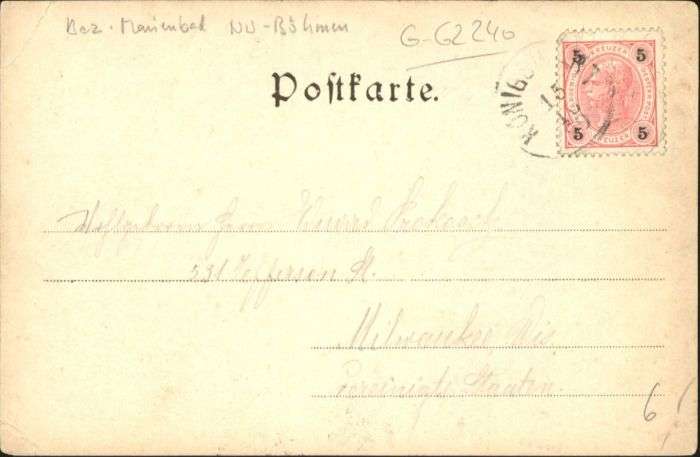 Bez. Marienbad NW-Böhmen
G-G2240
Postkarte.
5 KREUZER 5
5 KREUZER 5
KÖNIGS
15
Wohlgeboren Herrn
231 Jefferson St.
Milwaukee Wis
Vereinigte Staaten.
6